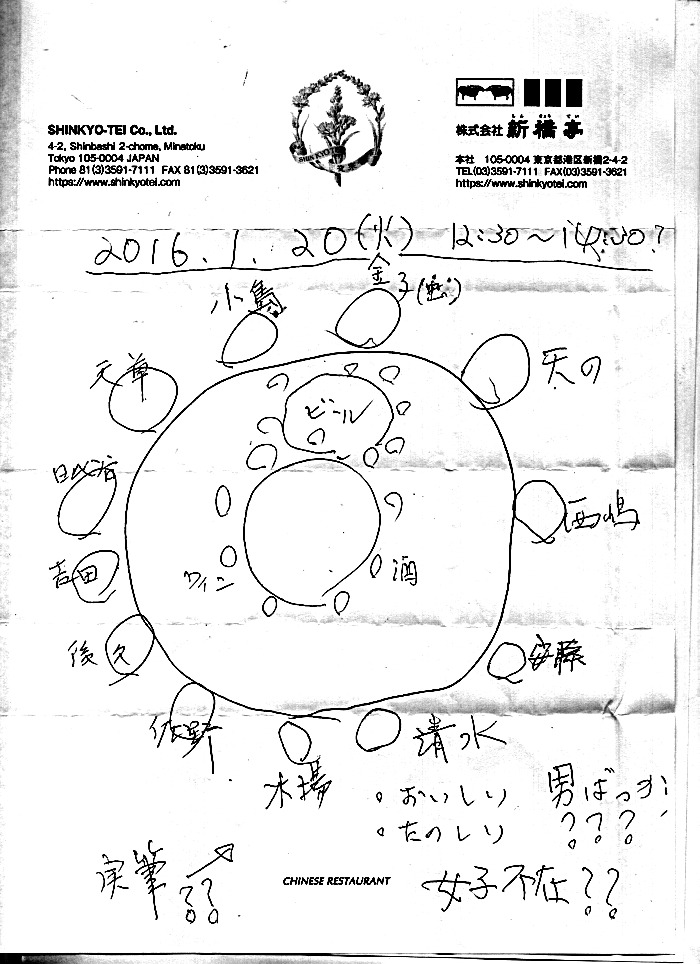 SHINKYO-TEI Co., Ltd.
4-2, Shinbashi 2-chome, Minatoku
Tokyo 105-0004 JAPAN
Phone 81(3)3591-7111 FAX 81(3)3591-3621
https://www.shinkyotei.com
SHINKYO
株式会社 新橋亭
本社 105-0004 東京都港区新橋2-4-2
TEL(03)3591-7111 FAX(03)3591-3621
https://www.shinkyotei.com
2016.1.20(火) 12:30~14:30?
金子
小島
天草
天の
ビール
吉田
西嶋
ワイン
酒
後久
安藤
佐野
清水
木場
・おいしい
・たのしい
男ばっか
???
実筆
??
CHINESE RESTAURANT
女子不在??